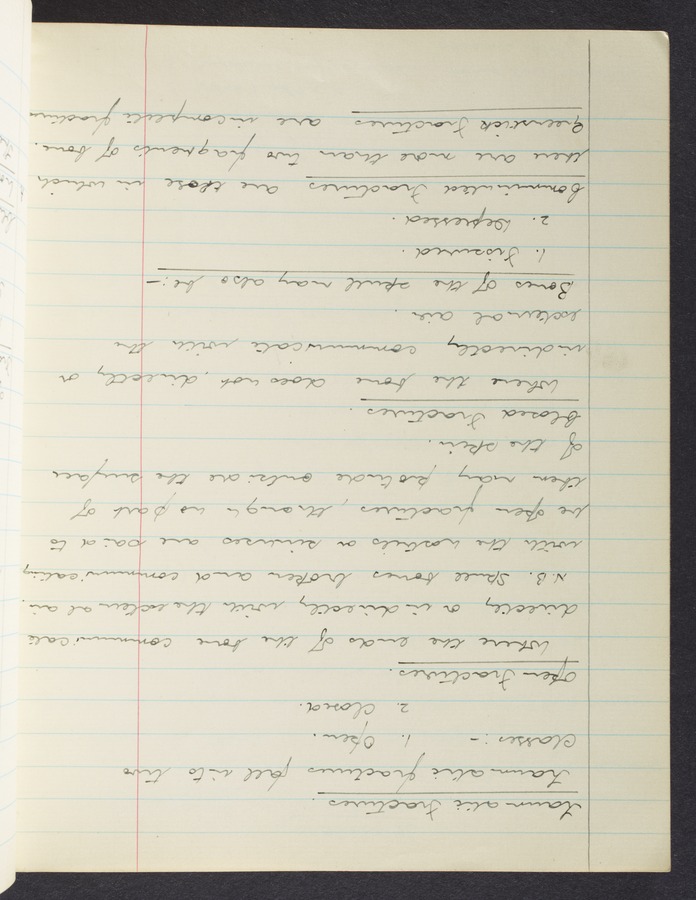 Traumatic Fractures.
Traumatic fractures fall into two
Classes :- 1. Open.
2. Closed.
Open Fractures.
Where the ends of the bone communicate
directly or indirectly with the external air.
N.B. Skull bones broken and communicating
with the nostrils or sinuses are said to
be open fractures, though no part of
them may protrude outside the surface
of the skin.
Closed Fractures.
Where the bone does not, directly or
indirectly communicate with the
external air.
Bones of the skull may also be :-
1. Fissured.
2. Depressed.
Comminuted Fractures are those in which
there are more than two fragments of bone.
Greenstick Fractures are incomplete fractures